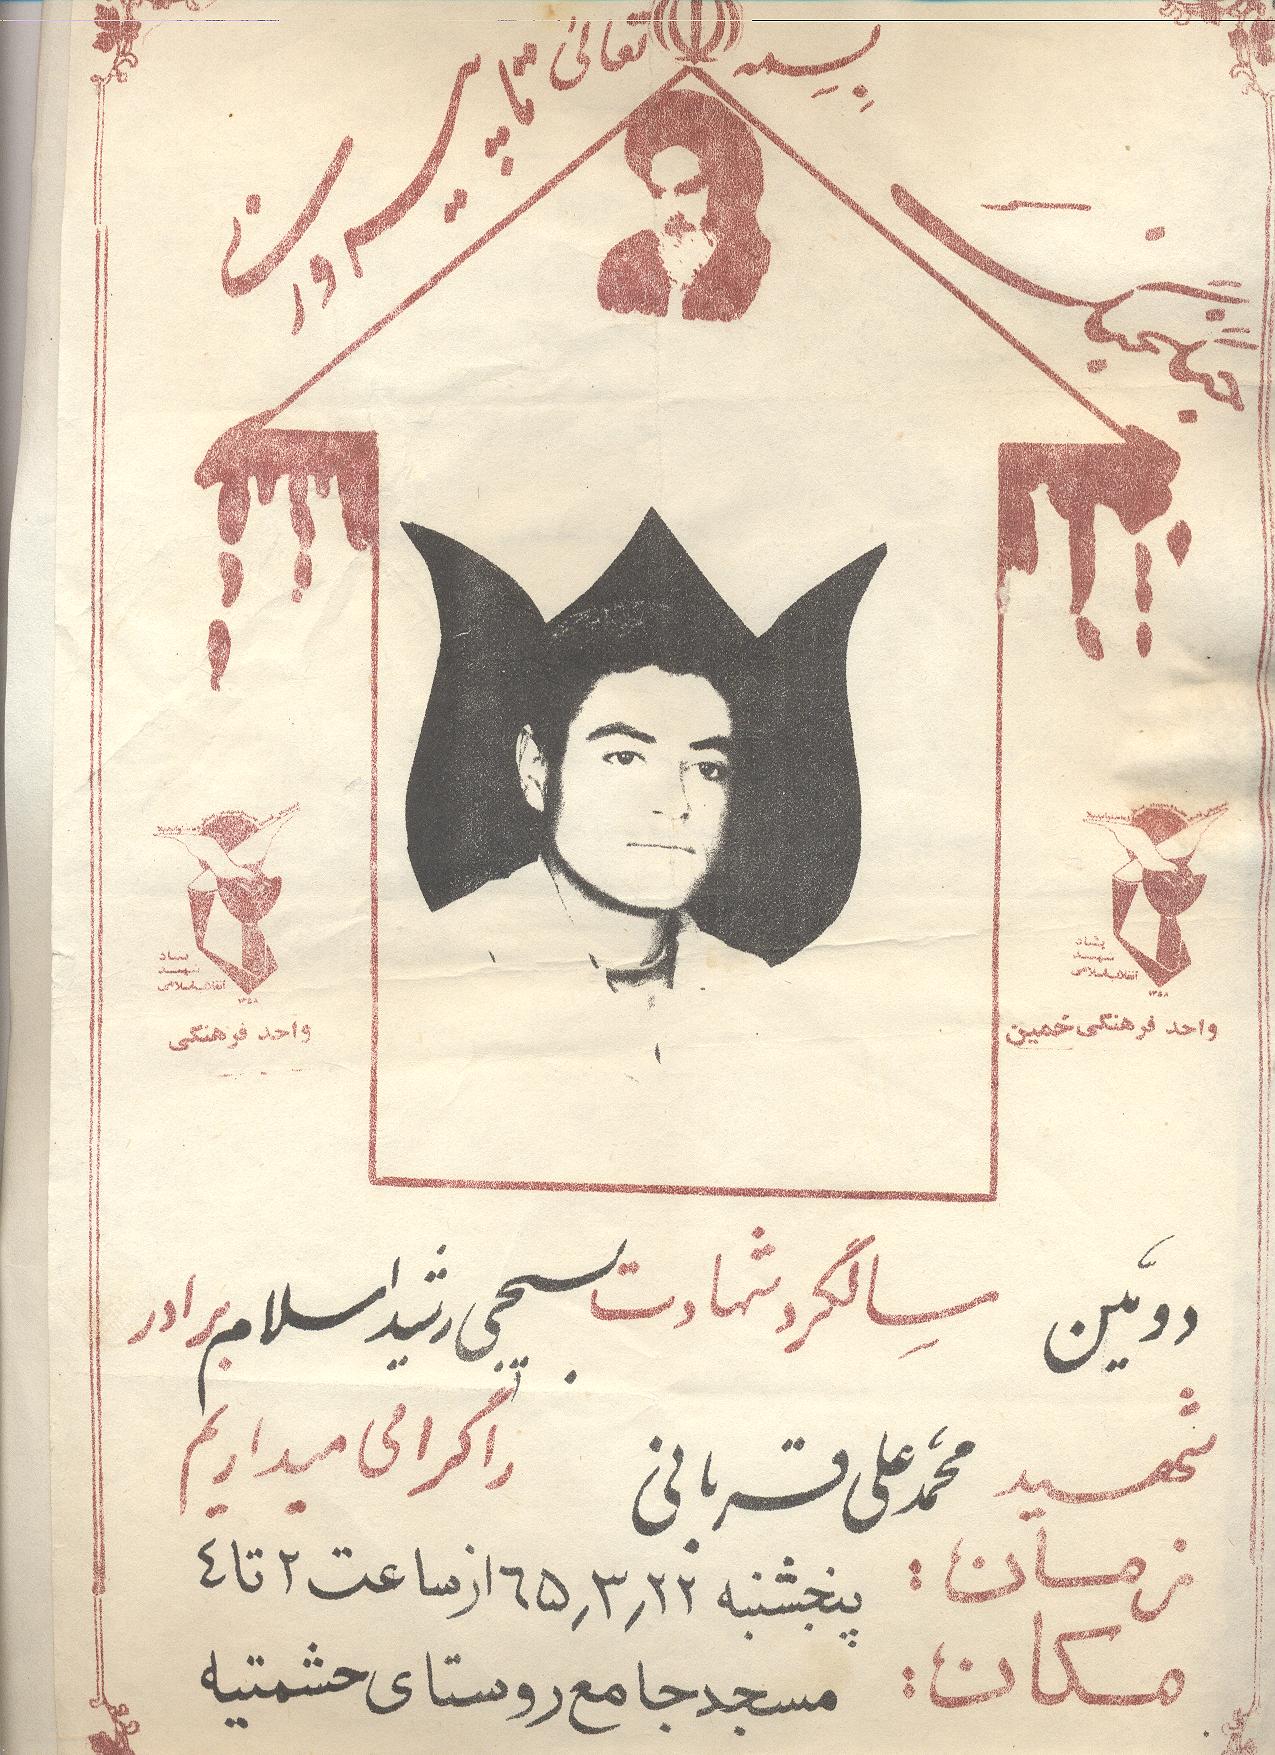 بسمه تعالی
جنگ جنگ تا پیروزی
بنیاد
شهید
انقلاب اسلامی
۱۳۵۸
واحد فرهنگی خمین
بنیاد
شهید
انقلاب اسلامی
۱۳۵۸
واحد فرهنگی
دومین سالگرد شهادت بسیجی رشید اسلام برادر
شهید محمد علی قربانی را گرامی میداریم
زمان : پنجشنبه ۲۲,۳,۶۵ از ساعت ۲ تا ٤
مکان : مسجد جامع روستای حشمتیه